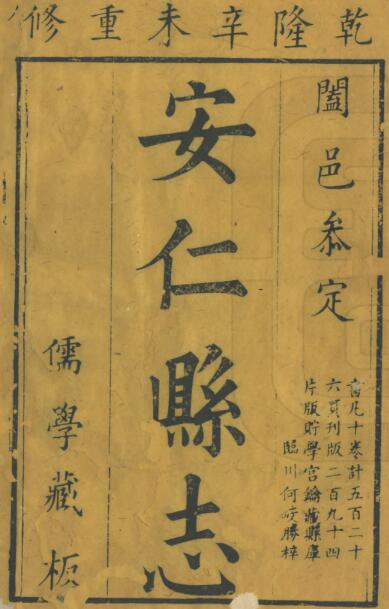 乾隆辛未重修
闔邑叅定
書凡十卷計五百二十
六頁刊版二百九十四
片版貯學宮鑰藏縣庫
臨川何梓
安仁縣志
儒學藏板